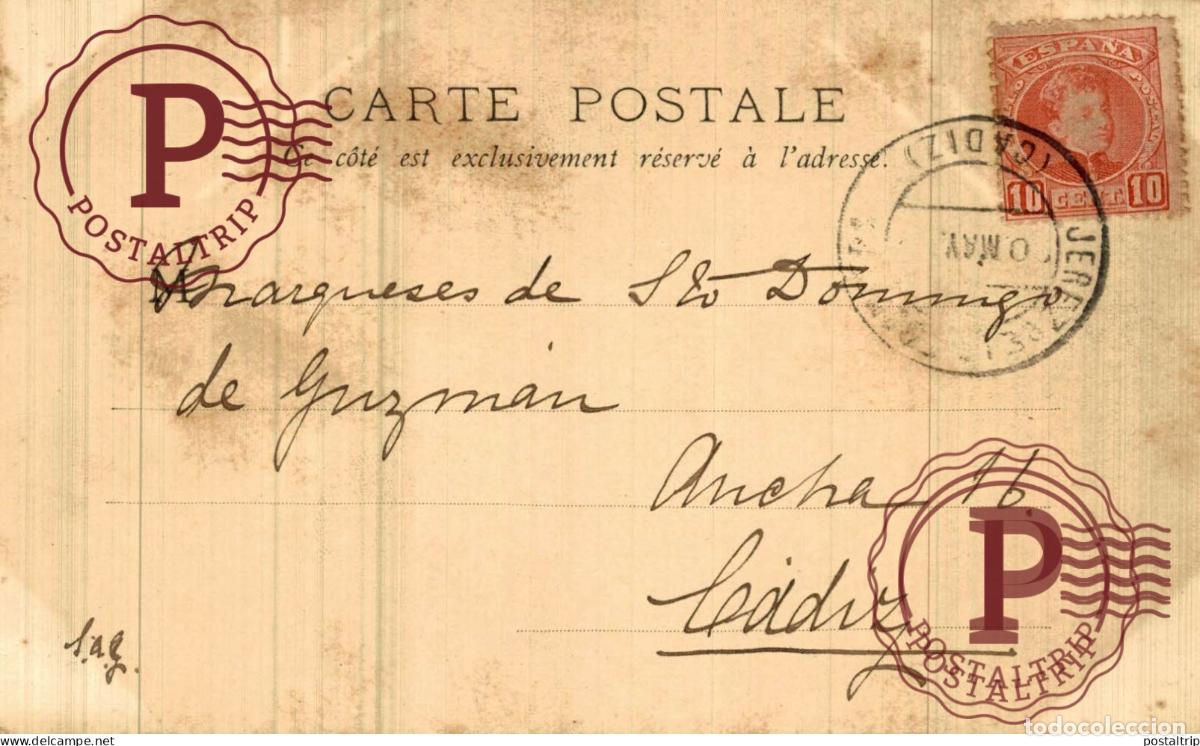 CARTE POSTALE
Ce côté est exclusivement réservé à l'adresse.
ESPAÑA
10 CENT. 10
(CADIZ)
JEREZ DE
0 MAY
P
POSTALTRIP
Marqueses de Sto Domingo
de Guzmán
Ancha 16.
Cádiz
S.a.g.
P
POSTALTRIP
POSTALTRIP
todocoleccion
www.delcampe.net
postaltrip